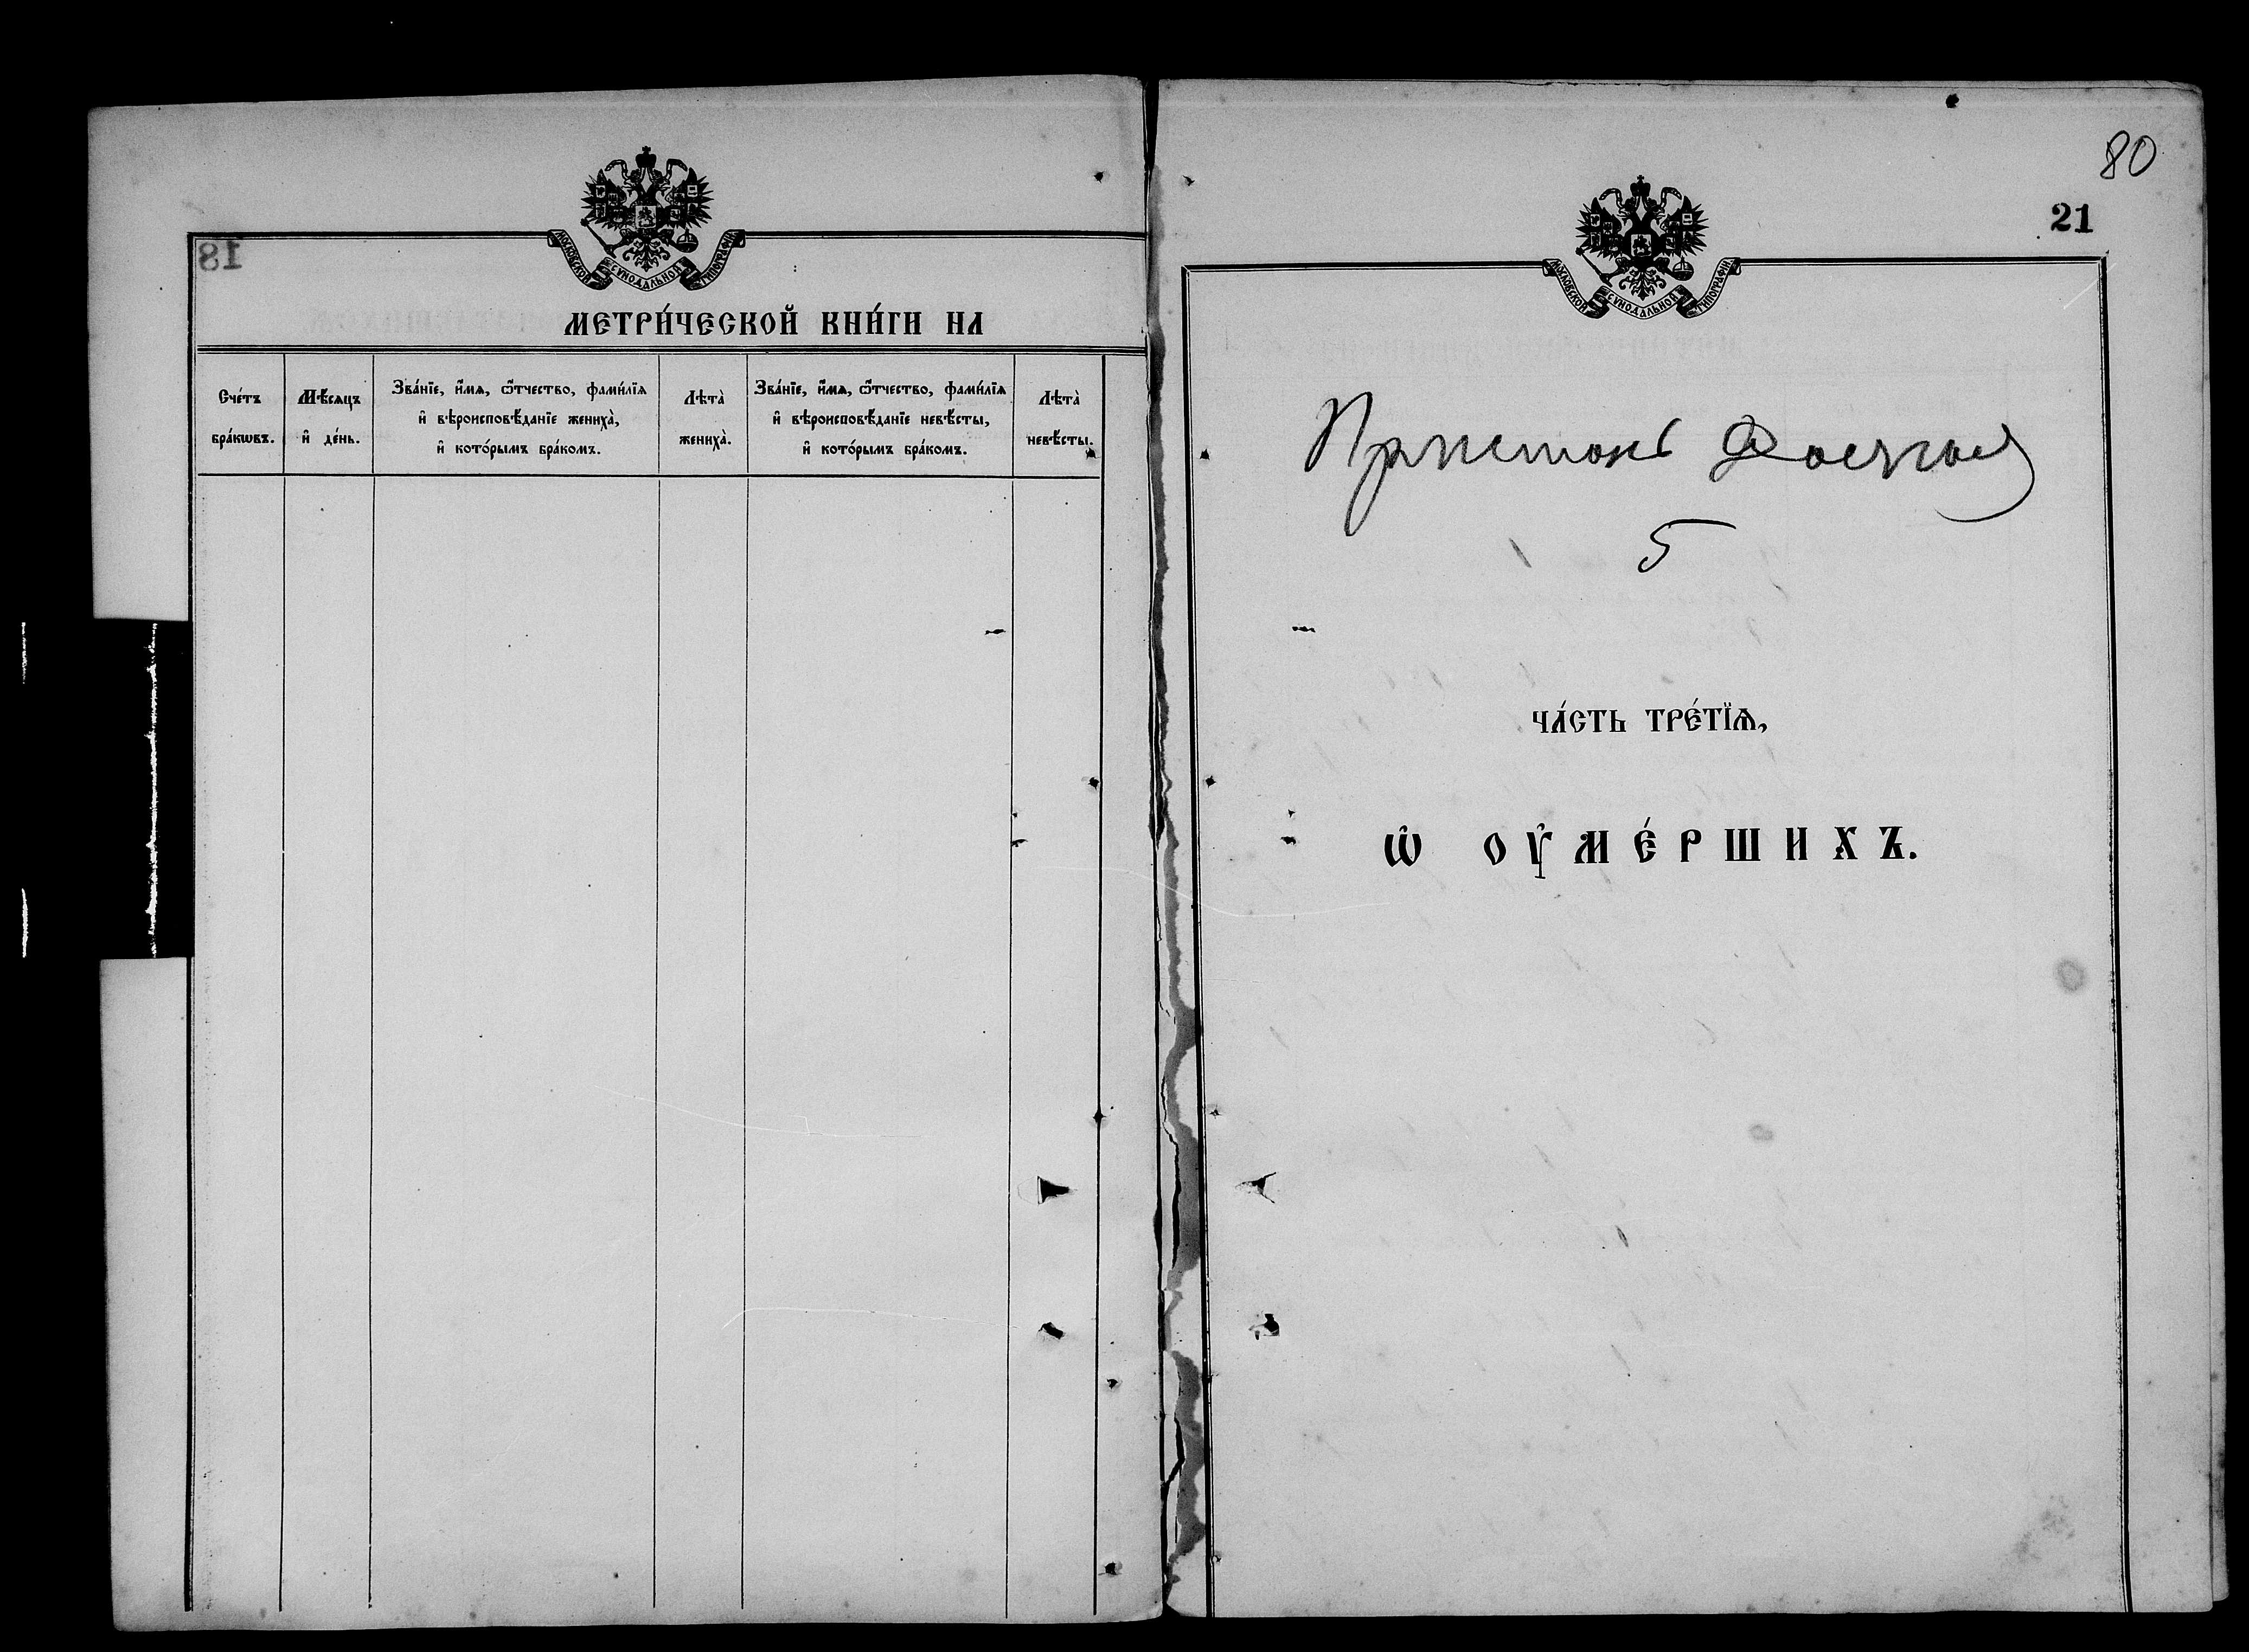 МОСКОВСКОЙ СѴНОДАЛЬНОЙ ТИПОГРАФІИ.
18
МЕТРИ́ЧЕСКОЙ КНИ́ГИ НА
Сче́тъ бра́кѡвъ.
Мѣ́сяцъ и҆ де́нь.
Зва́нїе, и҆́мѧ, ѻ҆́тчество, фами́лїѧ
и҆ вѣроисповѣ́данїе жениха̀,
и҆ кото́рымъ бра́комъ.
Лѣта̀ жениха̀.
Зва́нїе, и҆́мѧ, ѻ҆́тчество, фами́лїѧ
и҆ вѣроисповѣ́данїе невѣ́сты,
и҆ кото́рымъ бра́комъ.
Лѣта̀ невѣ́сты.
80
21
МОСКОВСКОЙ СѴНОДАЛЬНОЙ ТИПОГРАФІИ.
5
ЧА́СТЬ ТРЕ́ТЇѦ,
Ѡ҆ ОУ҆МЕ́РШИХЪ.